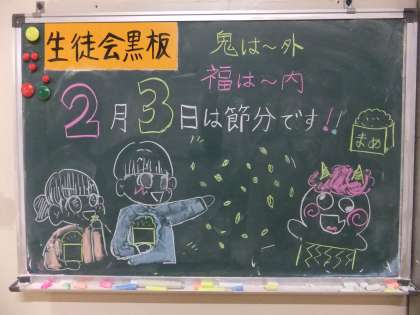 生徒会黒板
鬼は〜外
福は〜内
2月3日は節分です!!
まめ